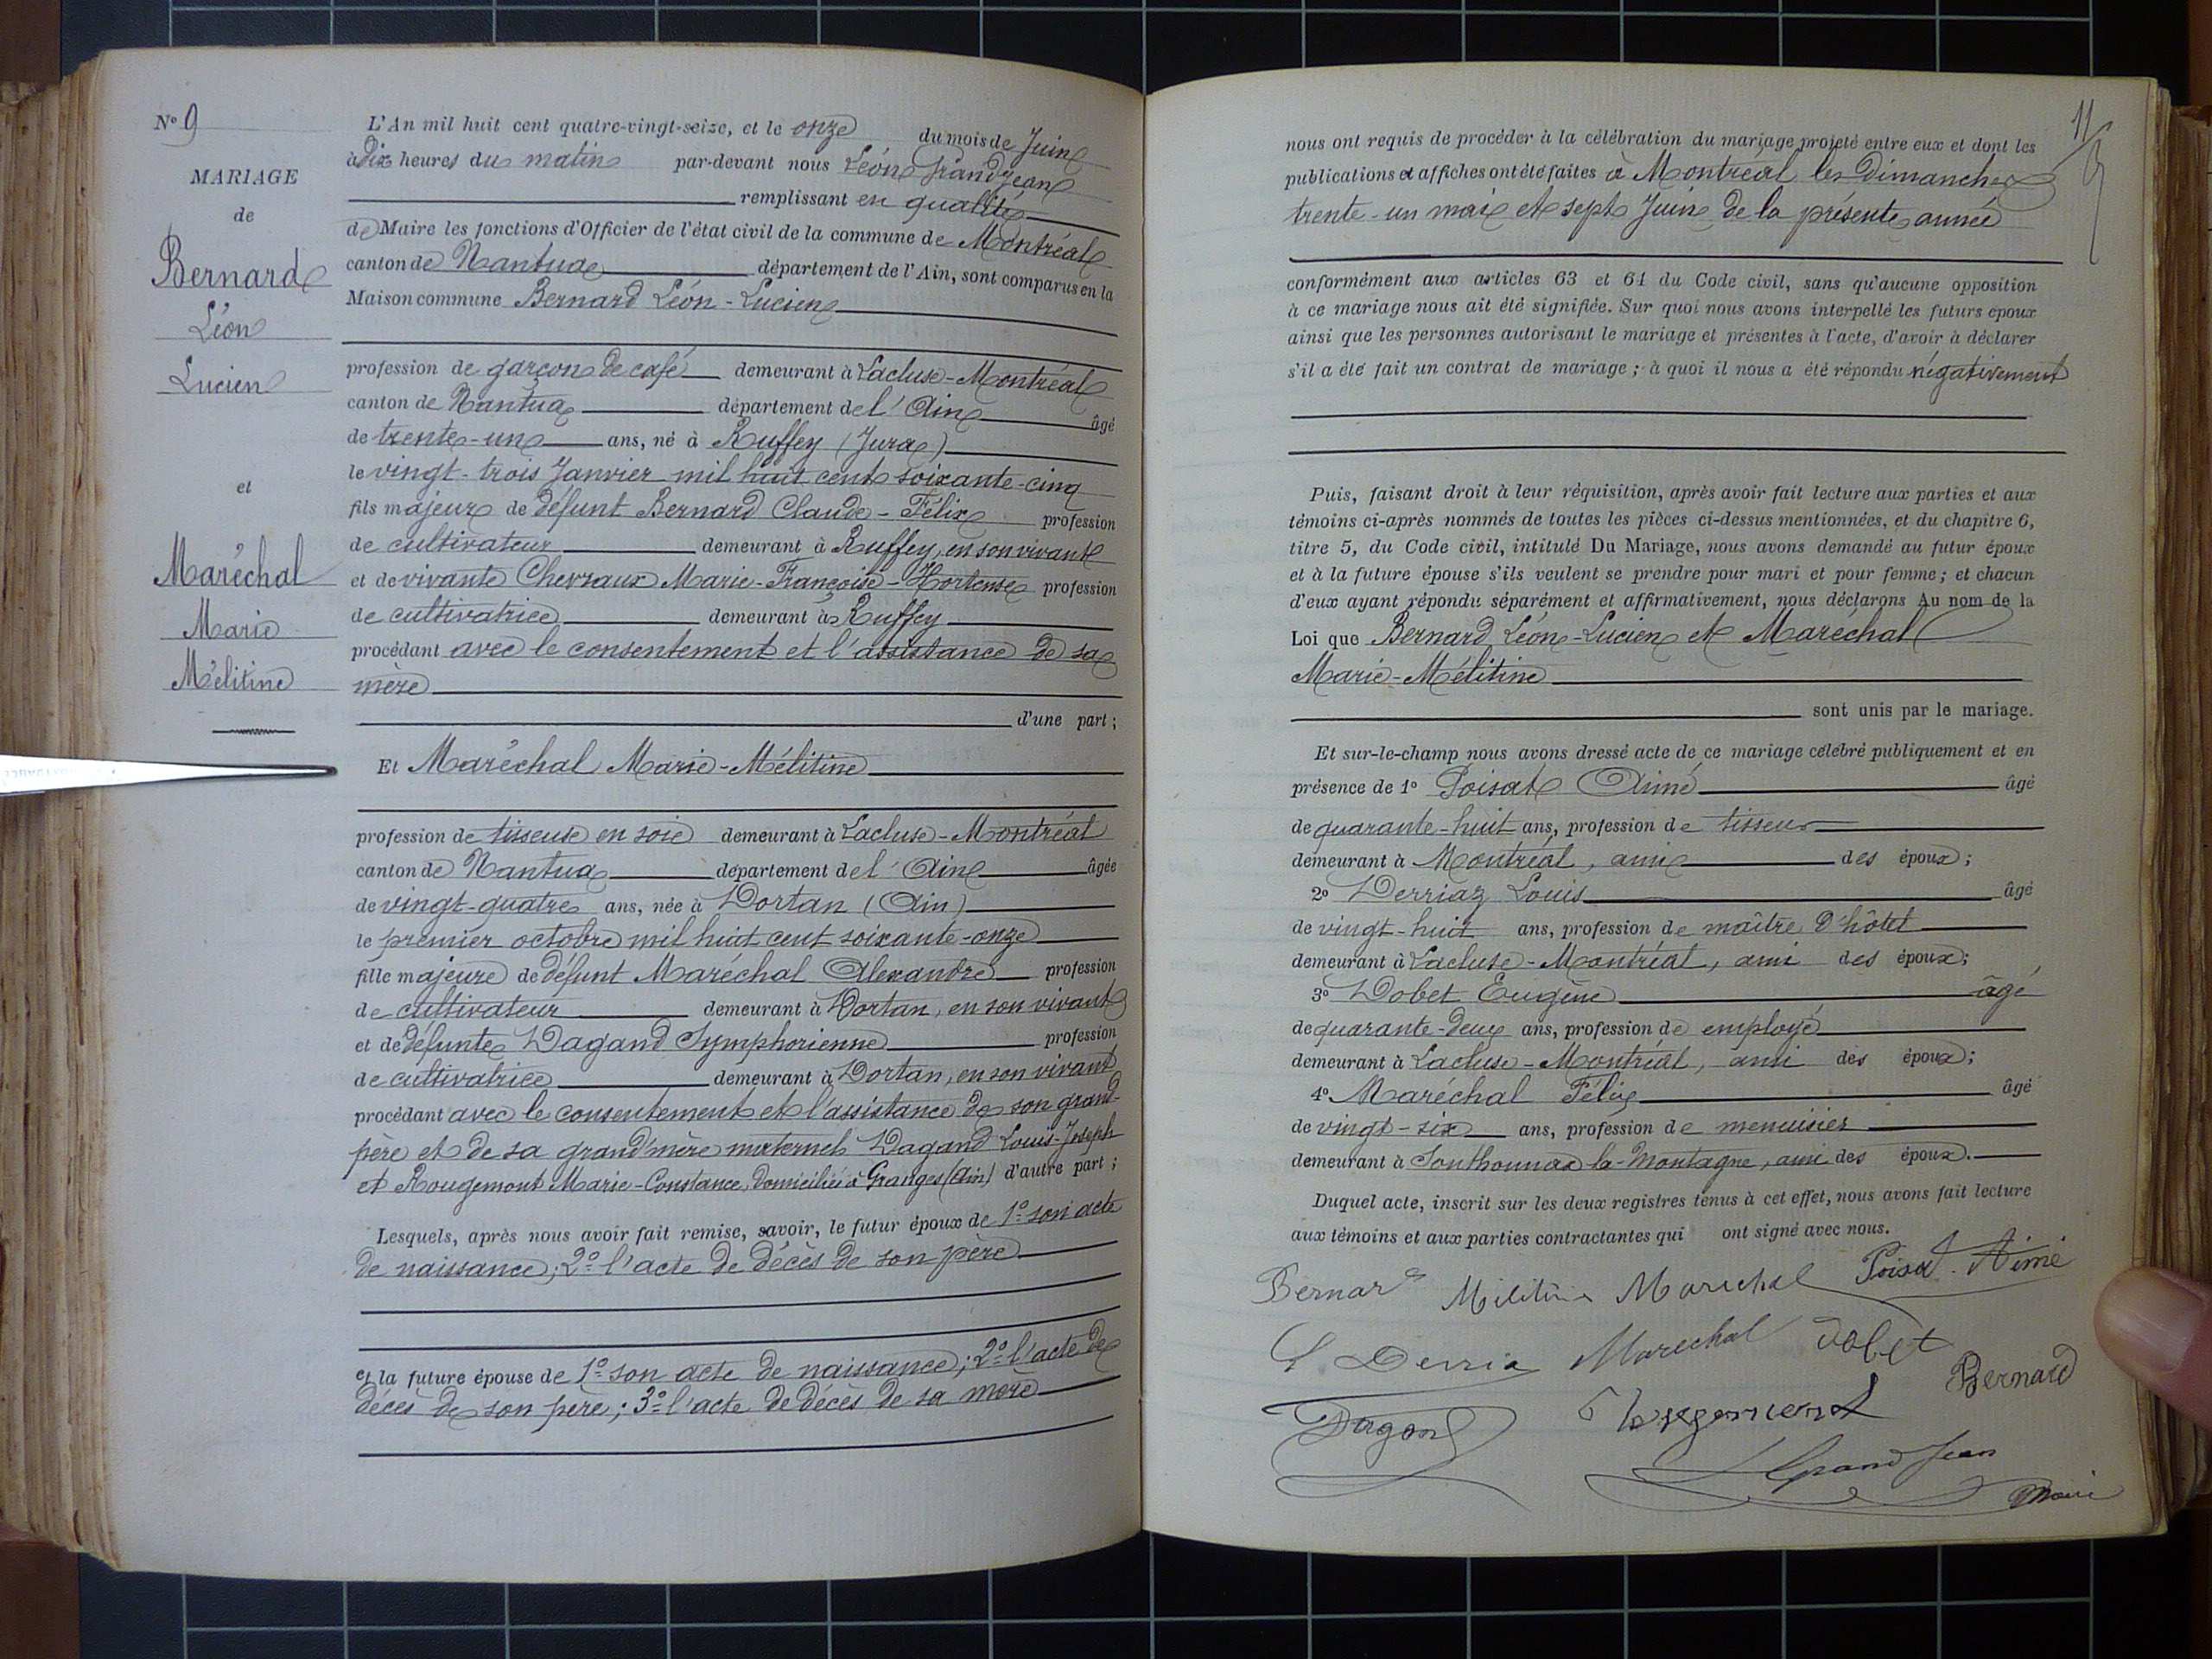 N° 9
MARIAGE
de
Bernard
Léon
Lucien
et
Maréchal
Marie
Mélitine
L'An mil huit cent quatre-vingt-seize, et le onze du mois de Juin
à Dix heures du matin par-devant nous Léon Grandjean
remplissant en qualité
de Maire les fonctions d'Officier de l'état civil de la commune de Montréal
canton de Nantua département de l'Ain, sont comparus en la
Maison commune Bernard Léon-Lucien
profession de garçon de café demeurant à Lacluse-Montréal
canton de Nantua département de l'Ain âgé
de trente-un ans, né à Ruffey (Jura)
le vingt-trois Janvier mil huit cent soixante-cinq
fils majeur de défunt Bernard Claude-Félix profession
de cultivateur demeurant à Ruffey, en son vivant
et de vivante Chevraux Marie-Françoise-Hortense profession
de cultivatrice demeurant à Ruffey
procédant avec le consentement et l'assistance de sa
mère
d'une part;
Et Maréchal Marie-Mélitine
profession de tisseuse en soie demeurant à Lacluse-Montréal
canton de Nantua département de l'Ain âgée
de vingt-quatre ans, née à Dortan (Ain)
le premier octobre mil huit cent soixante-onze
fille majeure de défunt Maréchal Alexandre profession
de cultivateur demeurant à Dortan, en son vivant
et de défunte Dagand Symphorienne profession
de cultivatrice demeurant à Dortan, en son vivant
procédant avec le consentement et l'assistance de son grand-
père et de sa grand'mère maternels Dagand Louis-Joseph
et Rougemont Marie-Constance, Domiciliés à Granges (Ain) d'autre part;
Lesquels, après nous avoir fait remise, savoir, le futur époux de 1° son acte
de naissance; 2° l'acte de décès de son père
et la future épouse de 1° son acte de naissance; 2° l'acte de
décès de son père; 3° l'acte de décès de sa mère
11
nous ont requis de procéder à la célébration du mariage projeté entre eux et dont les
publications et affiches ont été faites à Montréal les Dimanches
trente-un mai et sept Juin de la présente année
conformément aux articles 63 et 64 du Code civil, sans qu'aucune opposition
à ce mariage nous ait été signifiée. Sur quoi nous avons interpellé les futurs époux
ainsi que les personnes autorisant le mariage et présentes à l'acte, d'avoir à déclarer
s'il a été fait un contrat de mariage; à quoi il nous a été répondu négativement
Puis, faisant droit à leur réquisition, après avoir fait lecture aux parties et aux
témoins ci-après nommés de toutes les pièces ci-dessus mentionnées, et du chapitre 6,
titre 5, du Code civil, intitulé Du Mariage, nous avons demandé au futur époux
et à la future épouse s'ils veulent se prendre pour mari et pour femme; et chacun
d'eux ayant répondu séparément et affirmativement, nous déclarons Au nom de la
Loi que Bernard Léon-Lucien et Maréchal
Marie-Mélitine
sont unis par le mariage.
Et sur-le-champ nous avons dressé acte de ce mariage célébré publiquement et en
présence de 1° Poisat Aimé âgé
de quarante-huit ans, profession de tisseur
demeurant à Montréal, ami des époux;
2° Derriaz Louis âgé
de vingt-huit ans, profession de maître d'hôtel
demeurant à Lacluse-Montréal, ami des époux;
3° Dobet Eugène âgé
de quarante-deux ans, profession de employé
demeurant à Lacluse-Montréal, ami des époux;
4° Maréchal Félix âgé
de vingt-six ans, profession de menuisier
demeurant à Sonthonnax-la-Montagne, ami des époux.
Duquel acte, inscrit sur les deux registres tenus à cet effet, nous avons fait lecture
aux témoins et aux parties contractantes qui ont signé avec nous.
Bernard Mélitine Marechal Poisat Aimé
L Derria Marechal Dobet
Bernard
Dagand Rougemont
L Grandjean
Maire